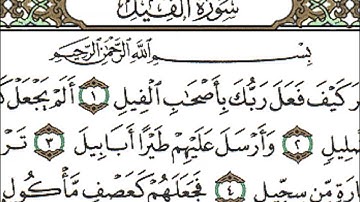 سورة الفيل
بِسْمِ اللَّهِ الرَّحْمَٰنِ الرَّحِيمِ
كَيْفَ فَعَلَ رَبُّكَ بِأَصْحَابِ الْفِيلِ ١ أَلَمْ يَجْعَلْ
٢ وَأَرْسَلَ عَلَيْهِمْ طَيْرًا أَبَابِيلَ ٣
مِّن سِجِّيلٍ ٤ فَجَعَلَهُمْ كَعَصْفٍ مَّأْكُولٍ